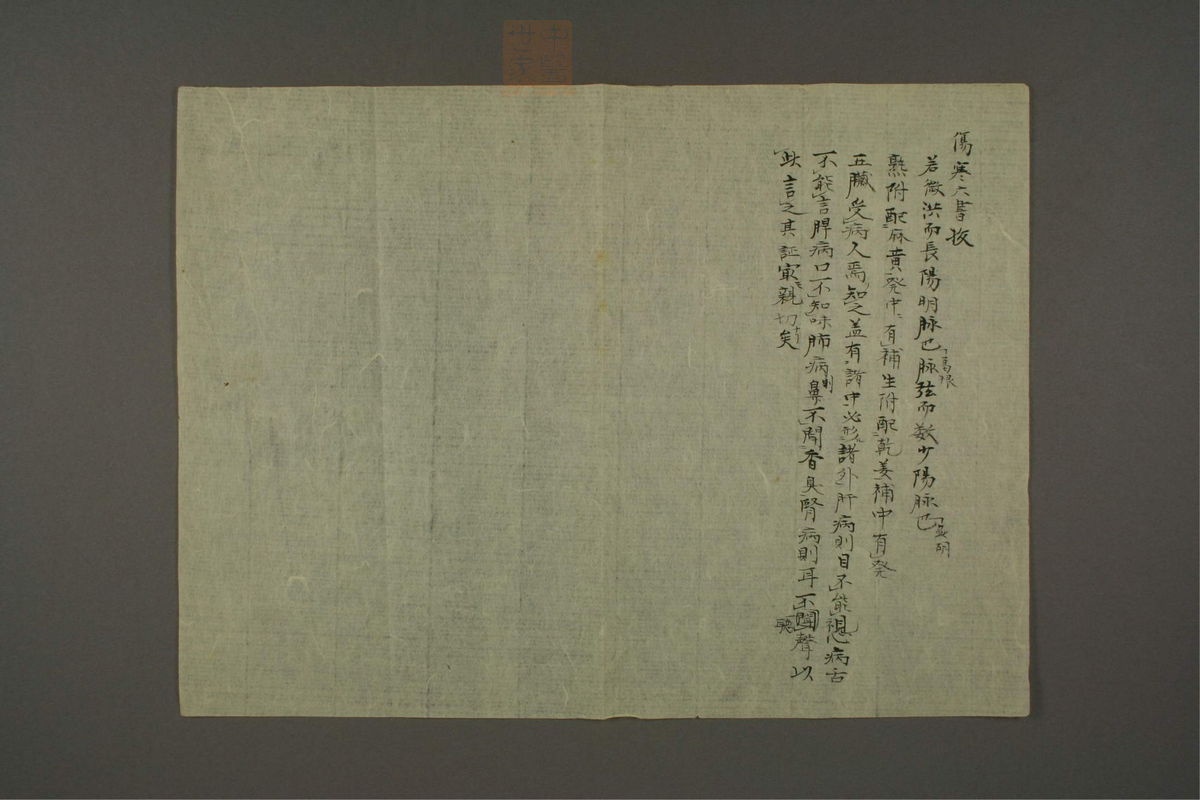 傷寒六書抜
若微洪而長陽明脉也葛根脉弦而数少陽脉也
熟附配麻黄発中有補生附配乾姜補中有発
五臓受病人焉知之盖有諸中必形諸外肝病則目不能視心病舌
不能言脾病口不知味肺病則鼻不聞香臭腎病則耳不聞聲以
此言之其証寂親切矣
聴
中醫
世家